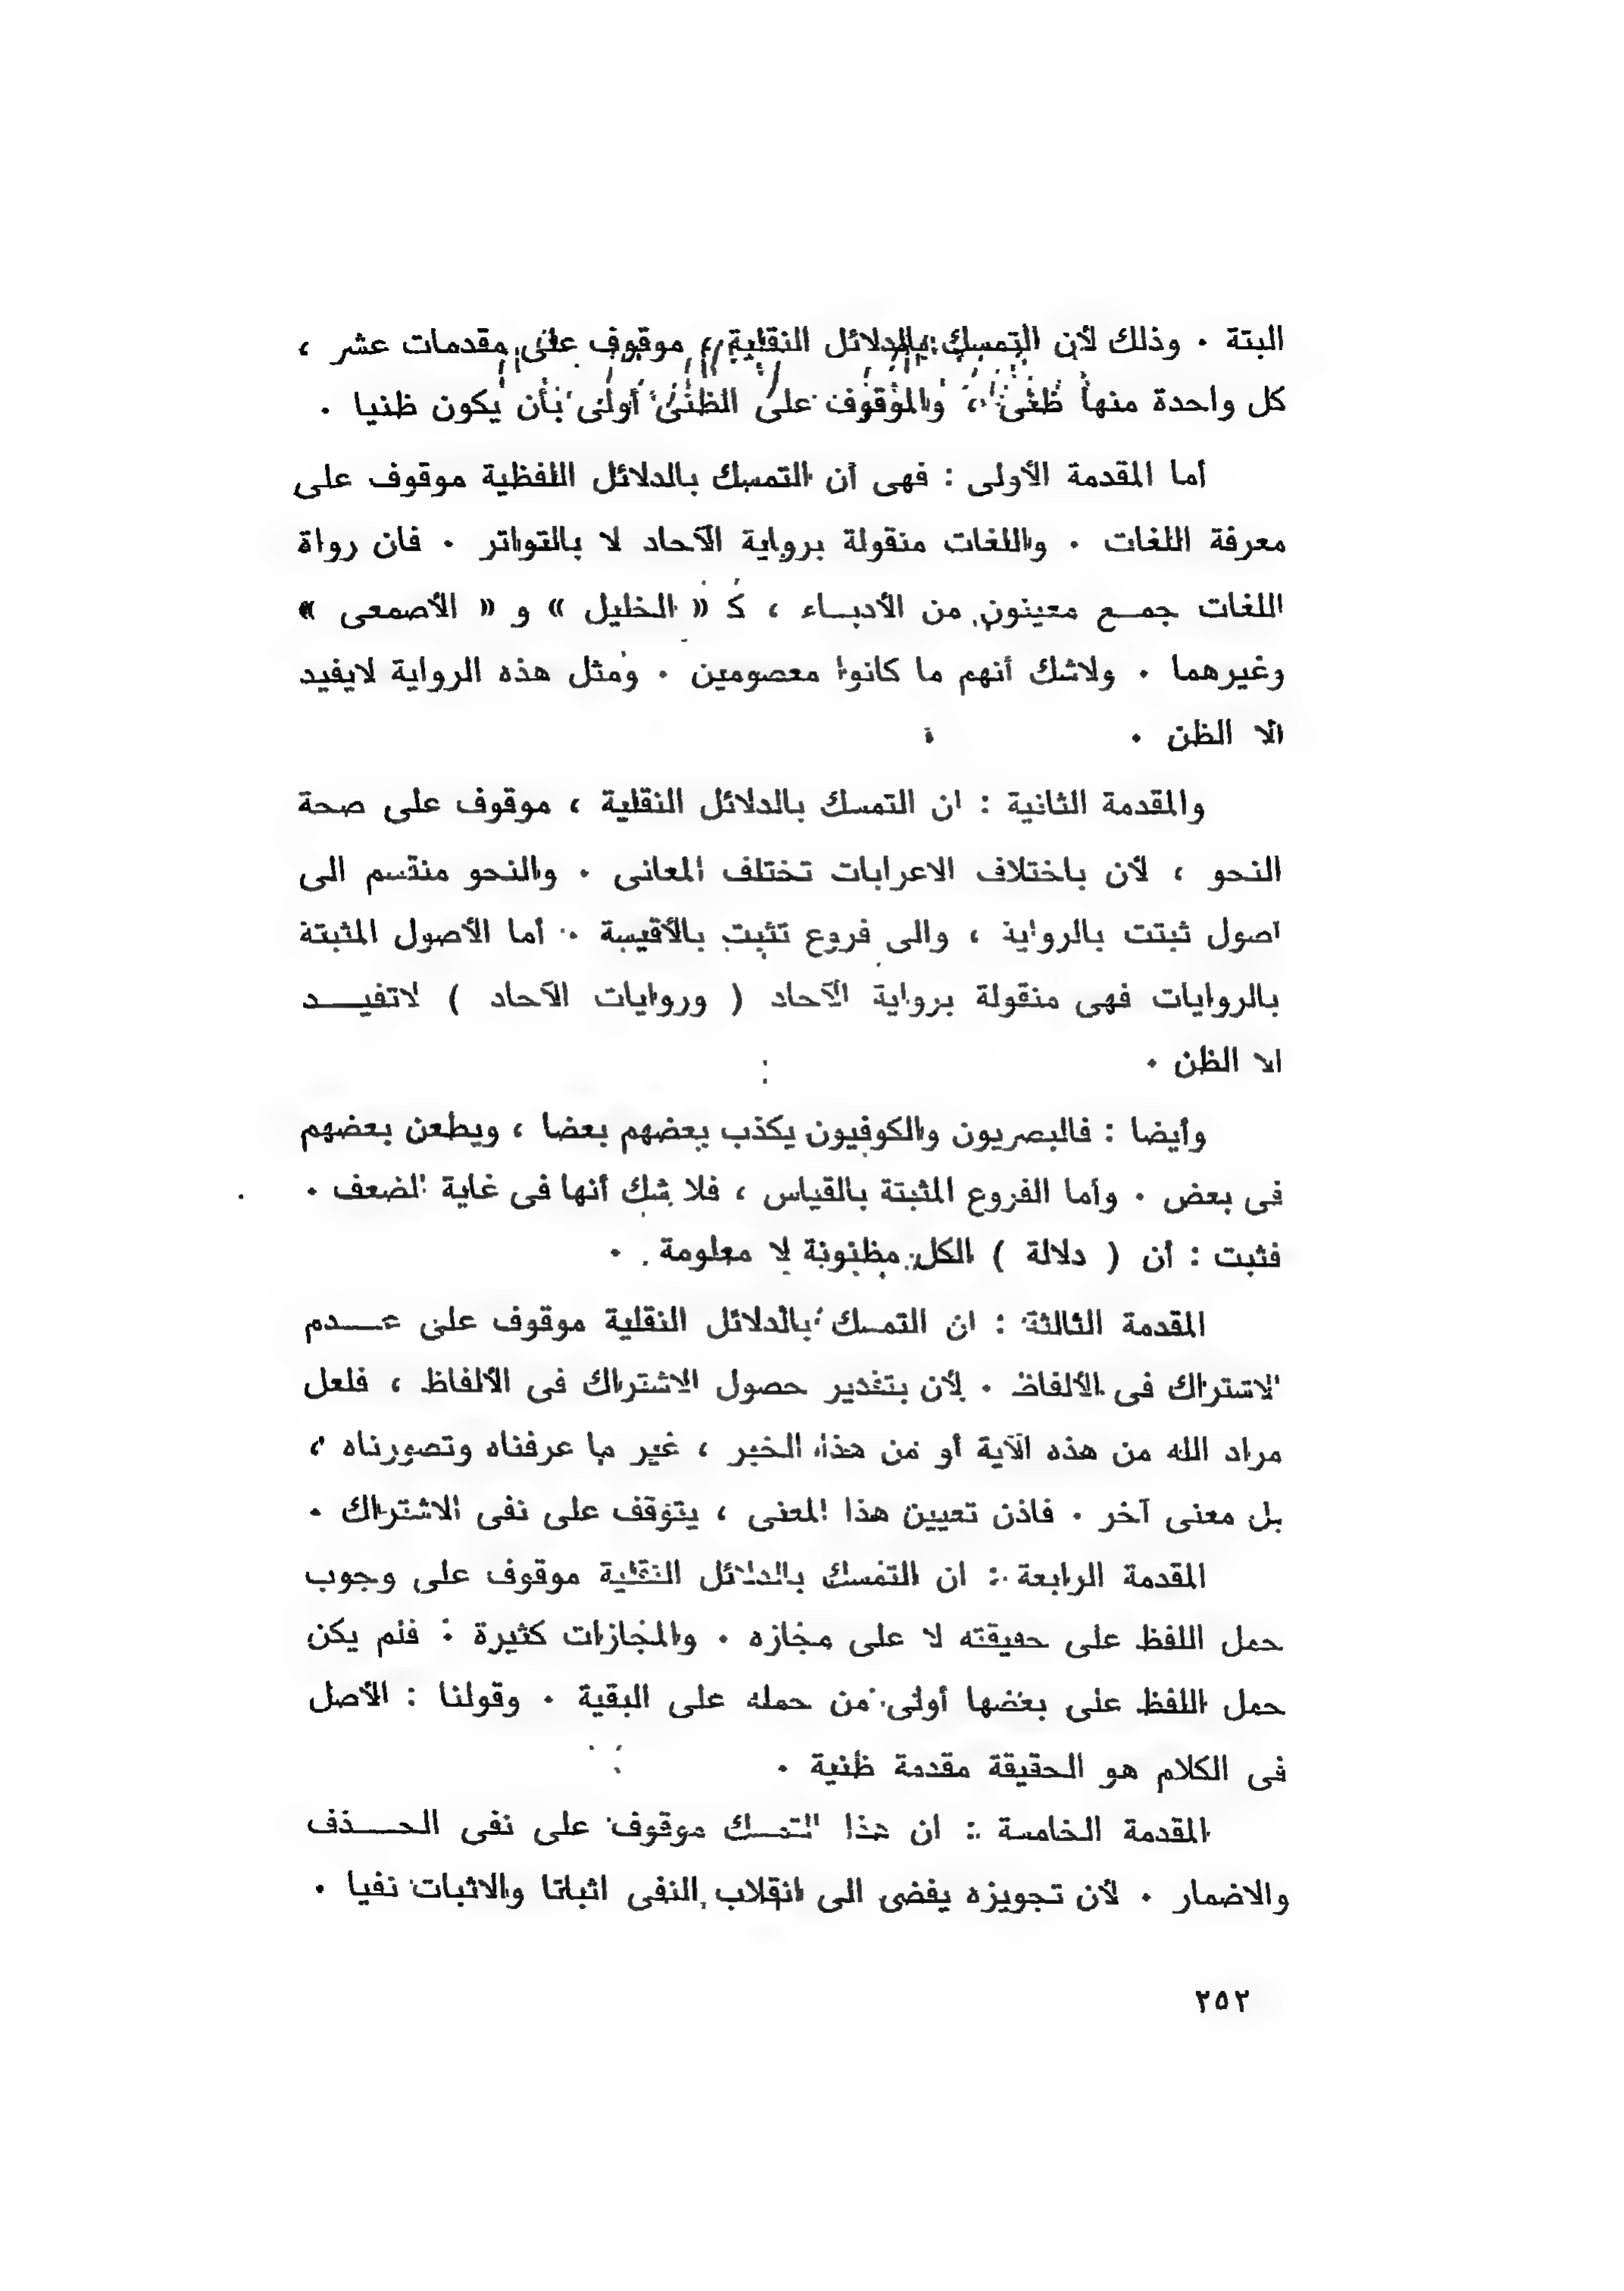 البتة ٠ وذلك لأن التمسك بالدلائل النقلية ، موقوف على مقدمات عشر ،
كل واحدة منها ظنى ، والموقوف على الظنى أولى بأن يكون ظنيا ٠
أما المقدمة الأولى : فهى أن التمسك بالدلائل اللفظية موقوف على
معرفة اللغات ٠ واللغات منقولة برواية الآحاد لا بالتواتر ٠ فان رواة
اللغات جمـع معينون من الأدبـاء ، كـ « الخليل » و « الأصمعى »
وغيرهما ٠ ولاشك أنهم ما كانوا معصومين ٠ ومثل هذه الرواية لايفيد
الا الظن ٠
والمقدمة الثانية : ان التمسك بالدلائل النقلية ، موقوف على صحة
النحو ، لأن باختلاف الاعرابات تختلف المعانى ٠ والنحو منقسم الى
أصول ثبتت بالرواية ، والى فروع تثبت بالأقيسة ٠ أما الأصول المثبتة
بالروايات فهى منقولة برواية الآحاد ( وروايات الآحاد ) لاتفيـــد
الا الظن ٠
وأيضا : فالبصريون والكوفيون يكذب بعضهم بعضا ، ويطعن بعضهم
فى بعض ٠ وأما الفروع المثبتة بالقياس ، فلا شك أنها فى غاية الضعف ٠
فثبت : أن ( دلالة ) الكل مظنونة لا معلومة ٠
المقدمة الثالثة : ان التمسك بالدلائل النقلية موقوف على عـــدم
الاشتراك فى الألفاظ ٠ لأن بتقدير حصول الاشتراك فى الألفاظ ، فلعل
مراد الله من هذه الآية أو من هذا الخبر ، غير ما عرفناه وتصورناه ،
بل معنى آخر ٠ فاذن تعيين هذا المعنى ، يتوقف على نفى الاشتراك ٠
المقدمة الرابعة : ان التمسك بالدلائل النقلية موقوف على وجوب
حمل اللفظ على حقيقته لا على مجازه ٠ والمجازات كثيرة : فلم يكن
حمل اللفظ على بعضها أولى من حمله على البقية ٠ وقولنا : الأصل
فى الكلام هو الحقيقة مقدمة ظنية ٠
المقدمة الخامسة : ان هذا التمـسك موقوف على نفى الحـــذف
والاضمار ٠ لأن تجويزه يفضى الى انقلاب النفى اثباتا والاثبات نفيا ٠
٢٥٢